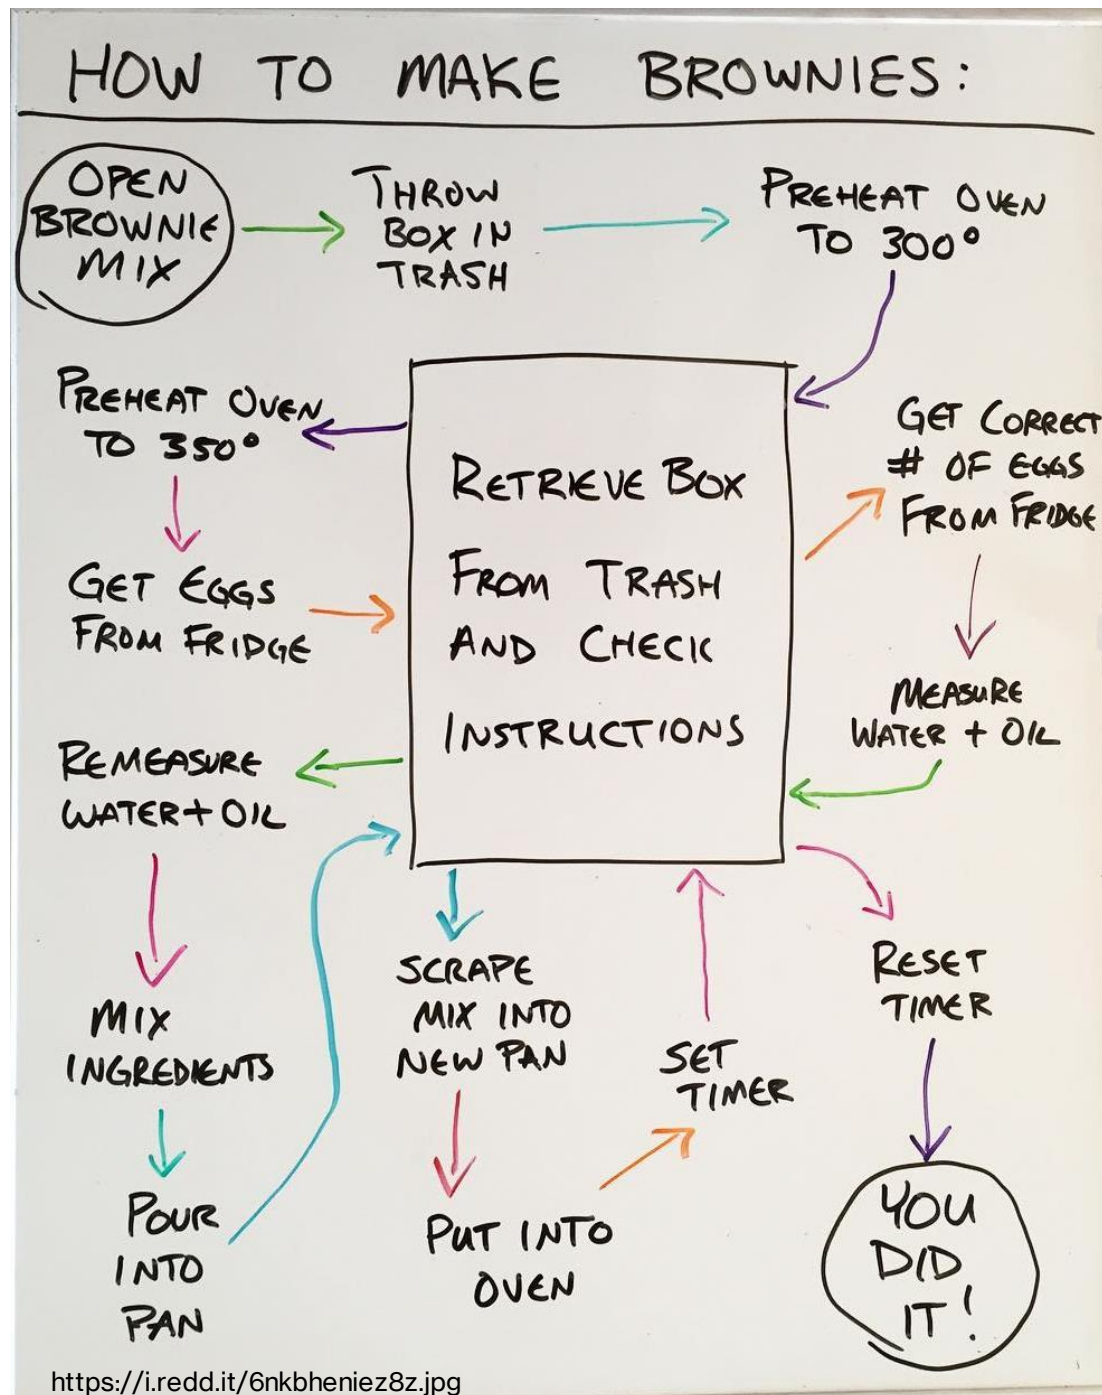 HOW TO MAKE BROWNIES:
OPEN
BROWNIE
MIX
THROW
BOX IN
TRASH
PREHEAT OVEN
TO 300°
RETRIEVE BOX
FROM TRASH
AND CHECK
INSTRUCTIONS
PREHEAT OVEN
TO 350°
GET EGGS
FROM FRIDGE
GET CORRECT
# OF EGGS
FROM FRIDGE
MEASURE
WATER + OIL
REMEASURE
WATER + OIL
MIX
INGREDIENTS
POUR
INTO
PAN
SCRAPE
MIX INTO
NEW PAN
PUT INTO
OVEN
SET
TIMER
RESET
TIMER
YOU
DID
IT!
https://i.redd.it/6nkbheniez8z.jpg